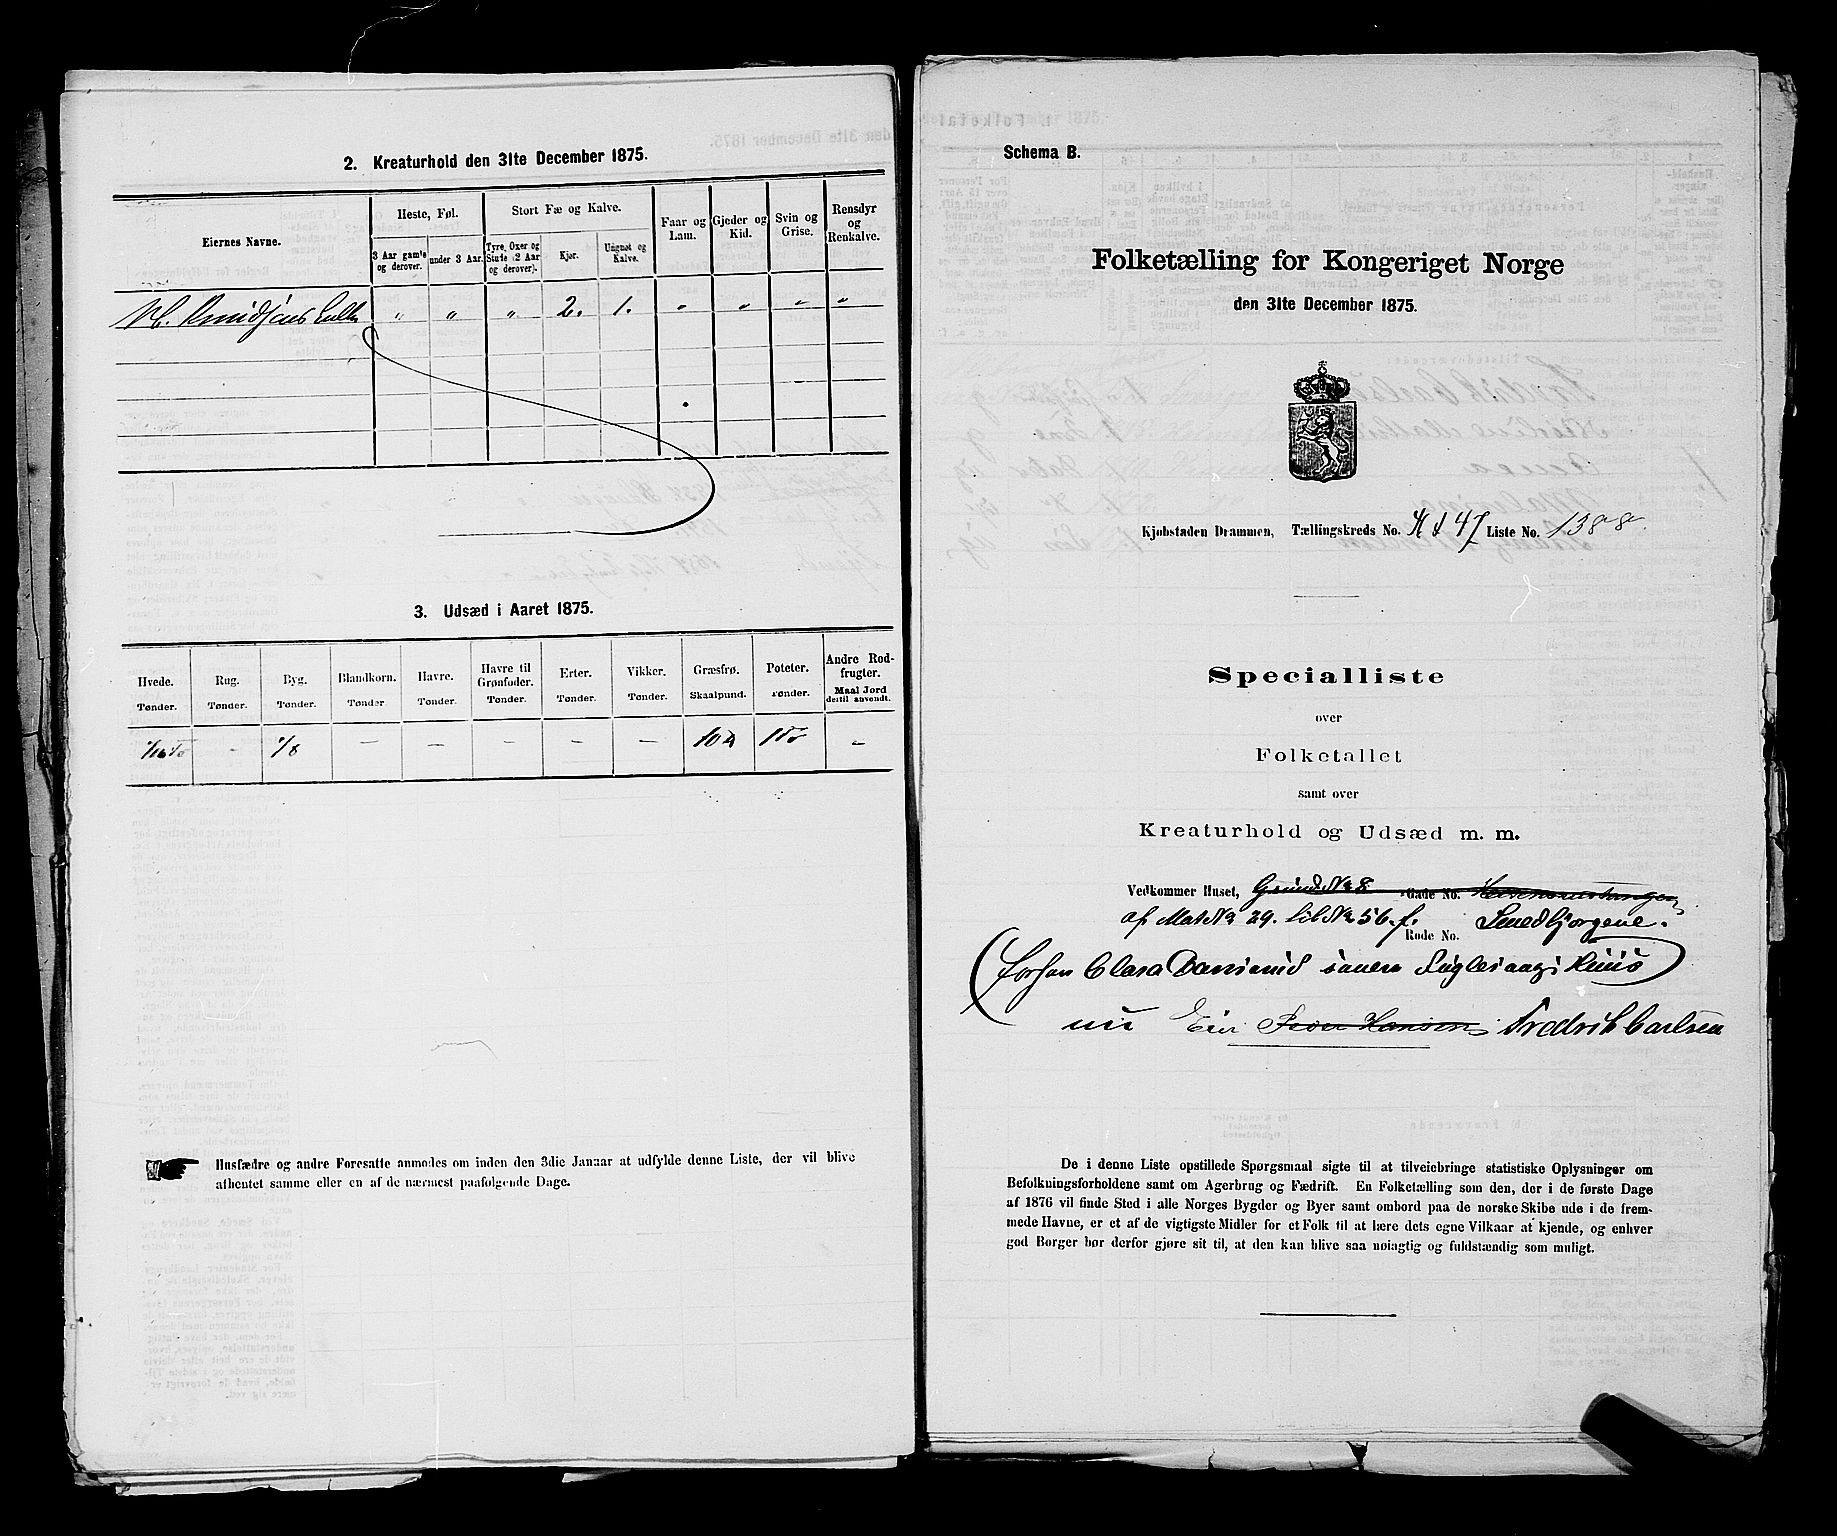 2. Kreaturhold den 31te December 1875.
Eiernes Navne.
Heste, Føl.
Stort Fæ og Kalve.
Faar og Lam.
Gjeder og Kid.
Svin og Grise.
Rensdyr og Renkalve.
3 Aar gamle og derover.
under 3 Aar.
Tyre, Oxer og Stude (2 Aar og derover).
Kjør.
Ungnøt og Kalve.
Knudsens Enke " " " 2. 1. " " " "
3. Udsæd i Aaret 1875.
Hvede. Tønder.
Rug. Tønder.
Byg. Tønder.
Blandkorn. Tønder.
Havre. Tønder.
Havre til Grønfoder. Tønder.
Erter. Tønder.
Vikker. Tønder.
Græsfrø. Skaalpund.
Poteter. Tønder.
Andre Rodfrugter. Maal Jord dertil anvendt.
- 1/8 - - - - - "
Husfædre og andre Foresatte anmodes om inden den 3die Januar at udfylde denne Liste, der vil blive
afhentet samme eller en af de nærmest paafølgende Dage.
Schema B.
Folketælling for Kongeriget Norge
den 31te December 1875.
Kjøbstaden Drammen, Tællingskreds No. 47 Liste No. 1388.
Specialliste
over
Folketallet
samt over
Kreaturhold og Udsæd m. m.
Vedkommer Huset, Grund No 8 Gade No.
af Mat No 29. lit No 56. f. Rode No. Smedbjergene.
(forhen Clara Huus)
nu Eier Hansen Fredrik Carlsen
De i denne Liste opstillede Spørgsmaal sigte til at tilveiebringe statistiske Oplysninger om
Befolkningsforholdene samt om Agerbrug og Fædrift. En Folketælling som den, der i de første Dage
af 1876 vil finde Sted i alle Norges Bygder og Byer samt ombord paa de norske Skibe ude i de frem-
mede Havne, er et af de vigtigste Midler for et Folk til at lære dets egne Vilkaar at kjende, og enhver
god Borger bør derfor gjøre sit til, at den kan blive saa nøiagtig og fuldstændig som muligt.